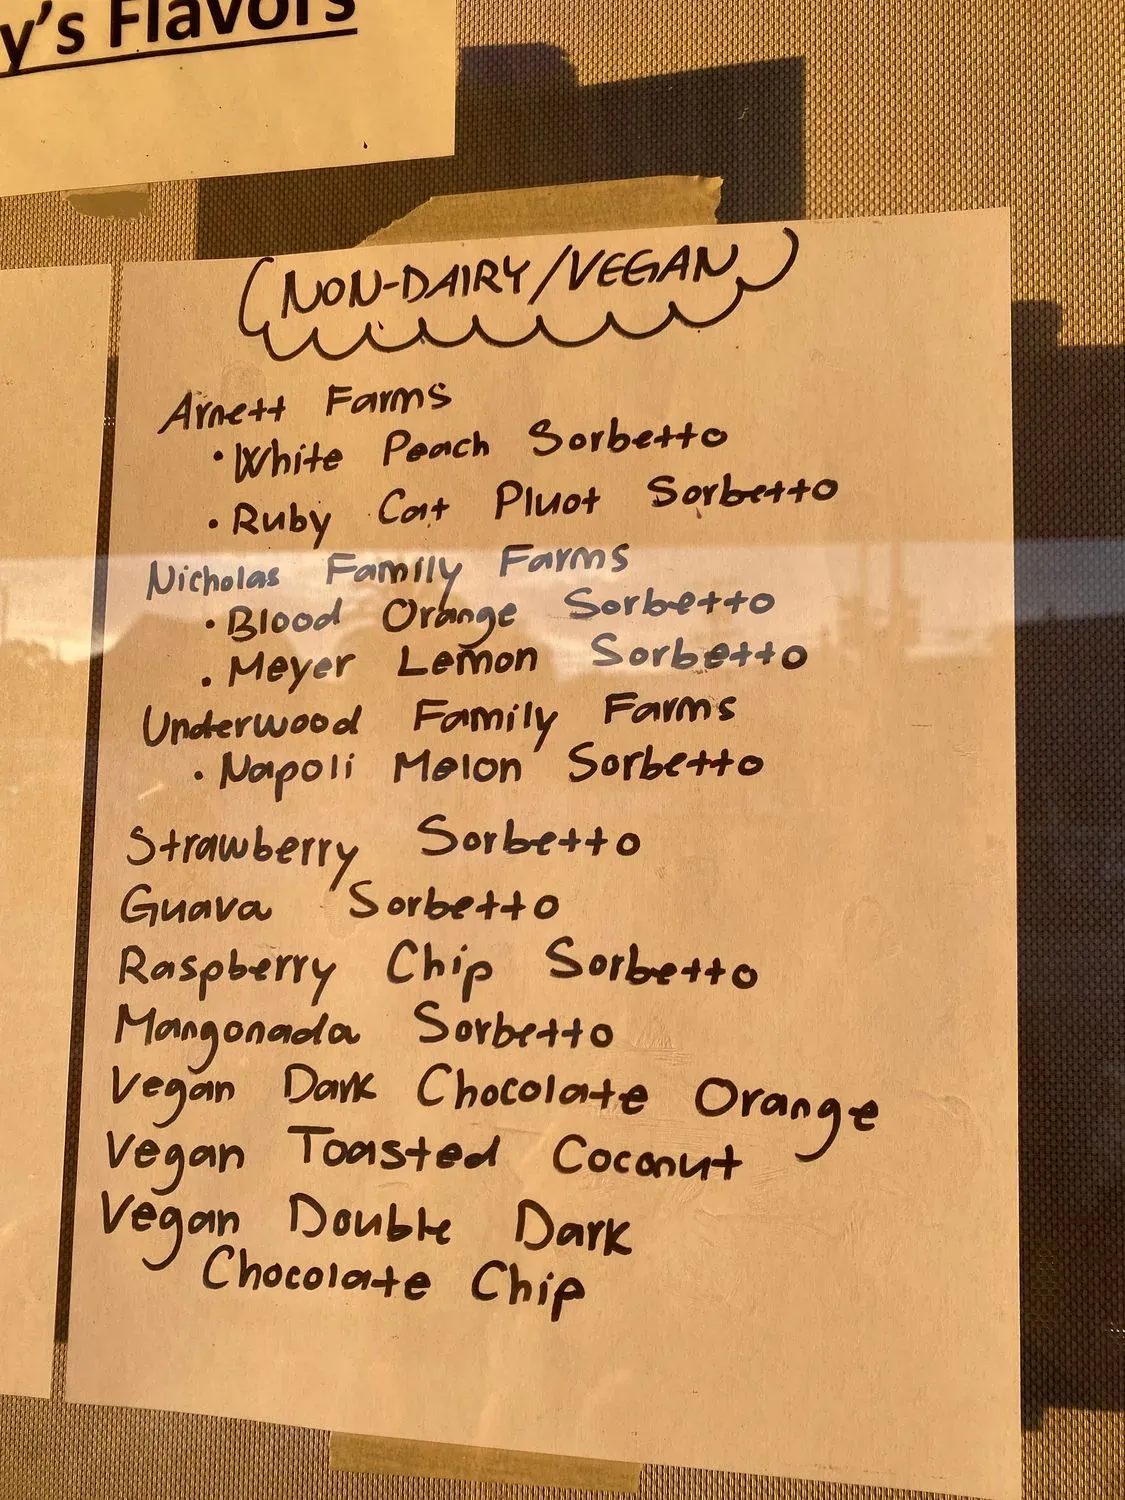 y's Flavors
(NON-DAIRY/VEGAN)
Arnett Farms
• White Peach Sorbetto
• Ruby Cat Pluot Sorbetto
Nicholas Family Farms
• Blood Orange Sorbetto
• Meyer Lemon Sorbetto
Underwood Family Farms
• Napoli Melon Sorbetto
Strawberry Sorbetto
Guava Sorbetto
Raspberry Chip Sorbetto
Mangonada Sorbetto
Vegan Dark Chocolate Orange
Vegan Toasted Coconut
Vegan Double Dark
Chocolate Chip